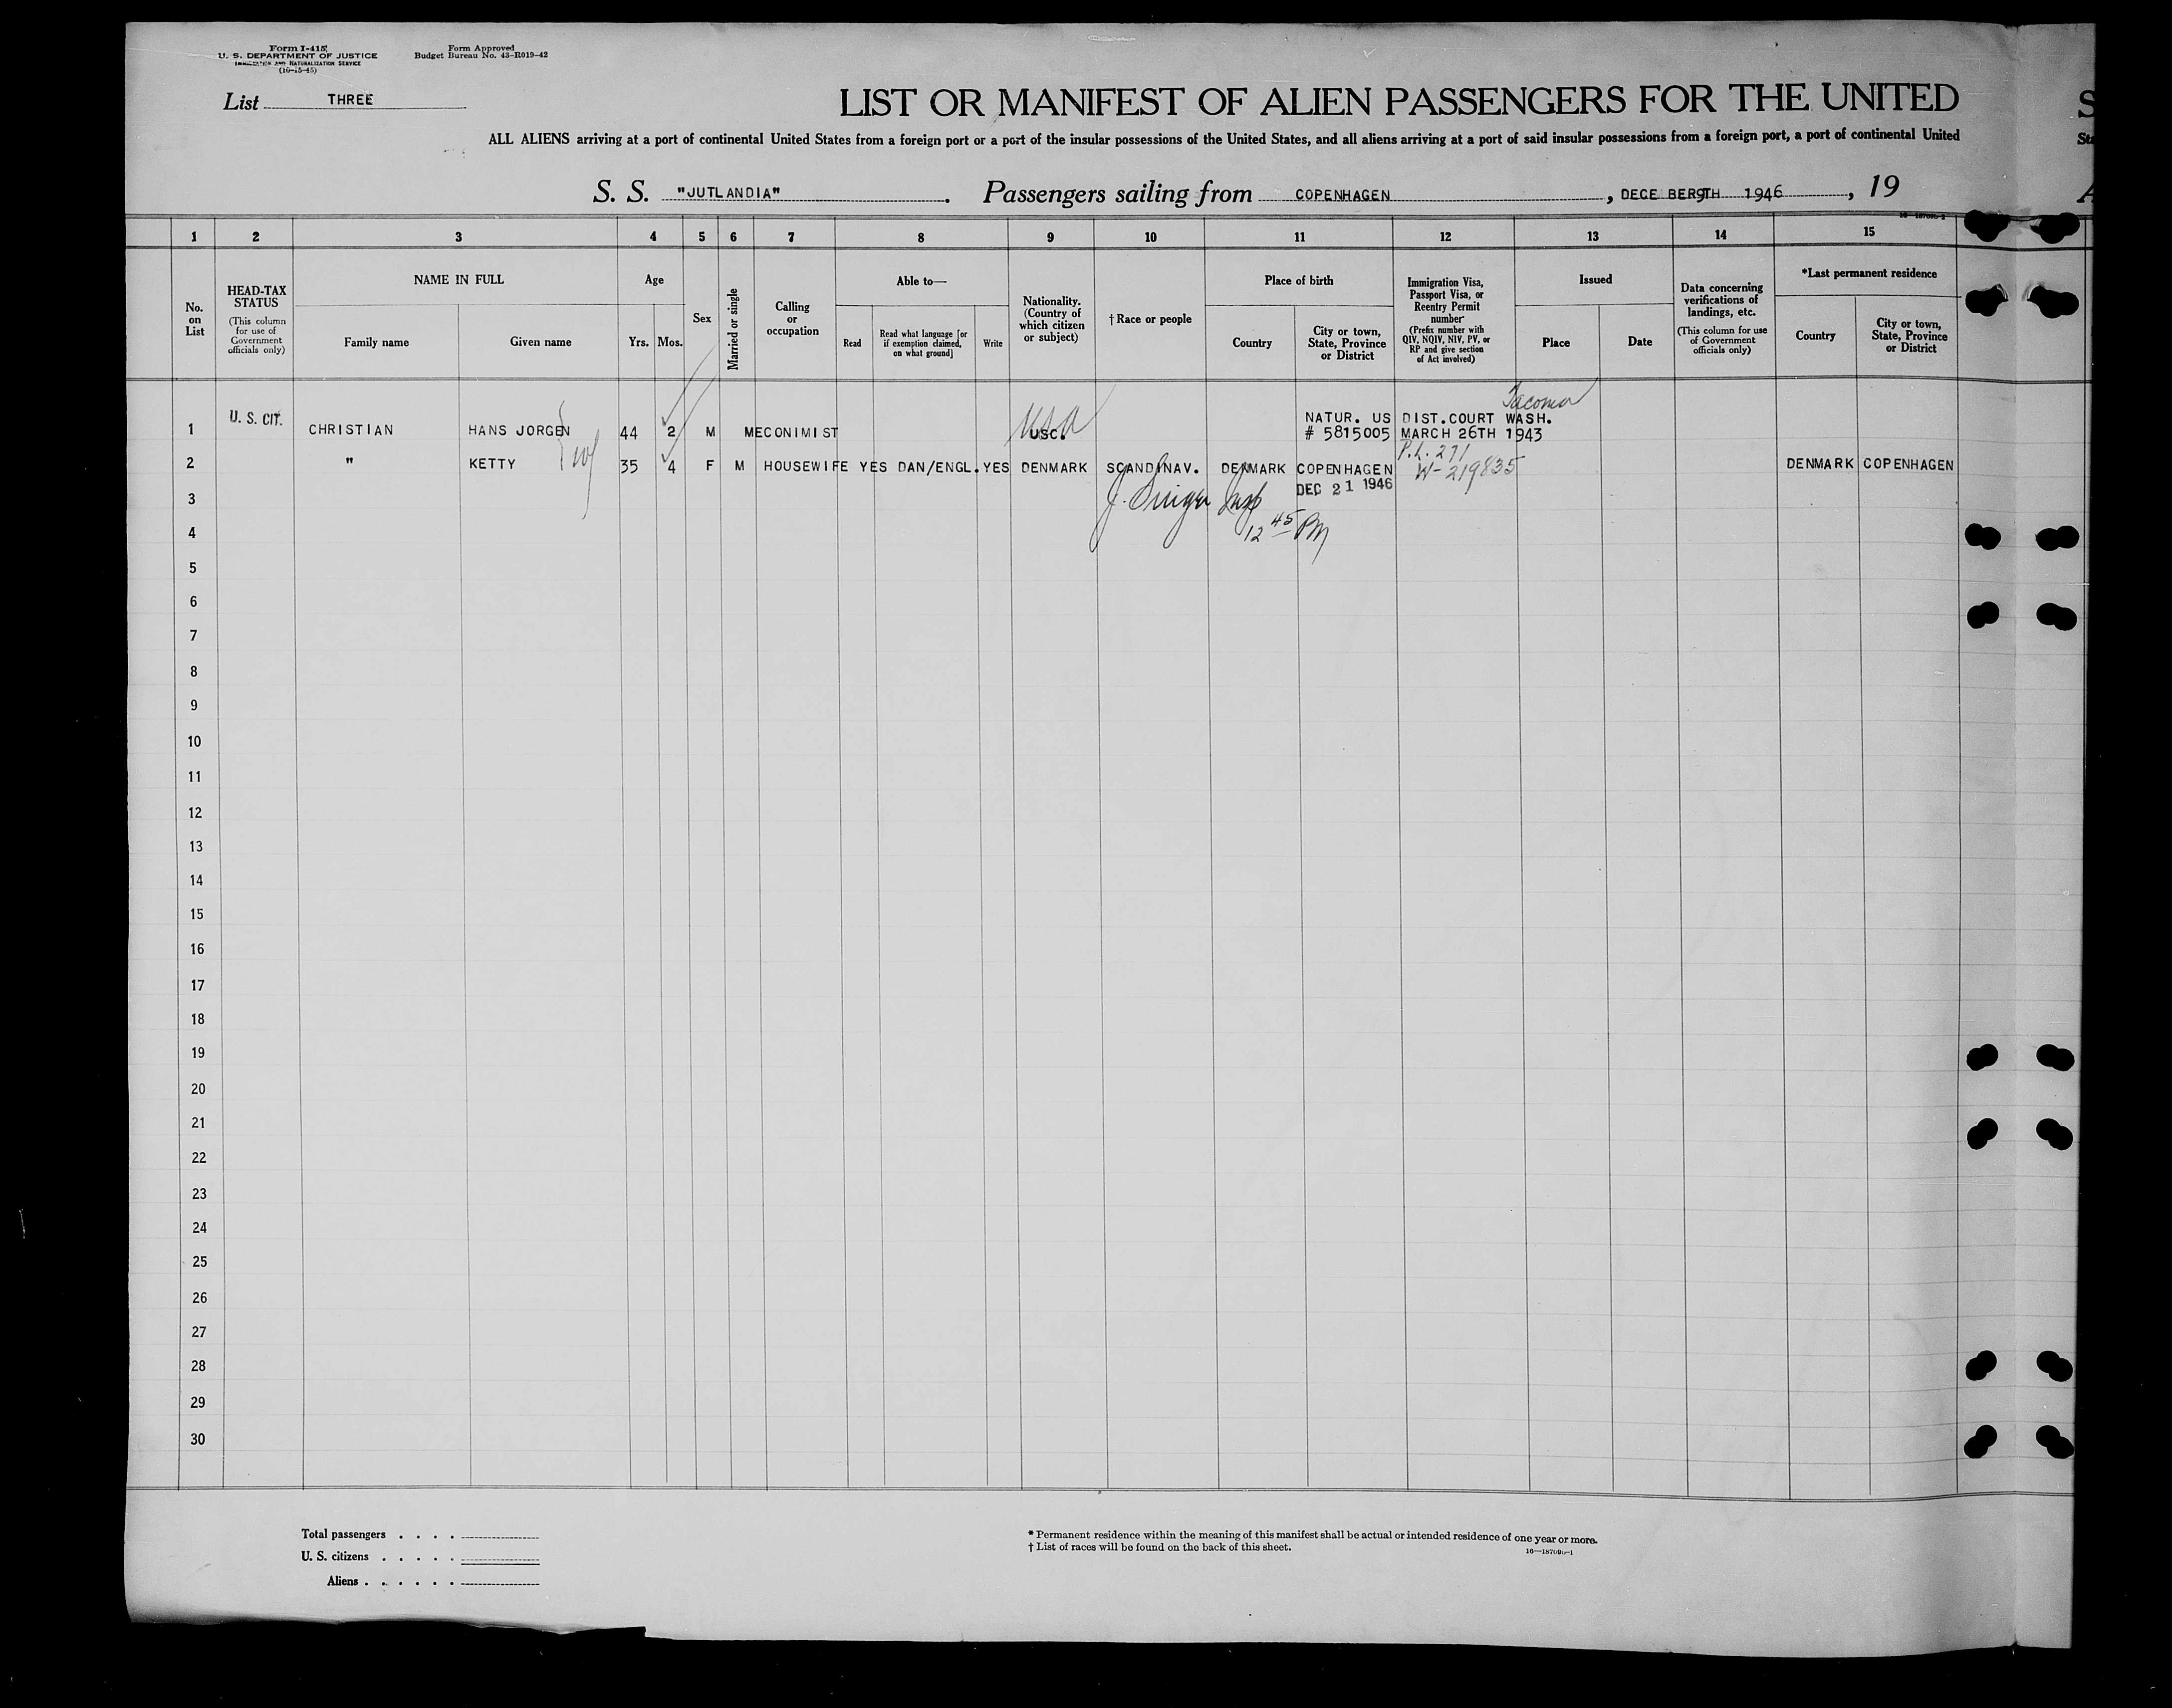 Form I-415
U. S. DEPARTMENT OF JUSTICE
IMMIGRATION AND NATURALIZATION SERVICE
(10-15-45)
Form Approved
Budget Bureau No. 43-R019-42
List THREE
LIST OR MANIFEST OF ALIEN PASSENGERS FOR THE UNITED
S
ALL ALIENS arriving at a port of continental United States from a foreign port or a port of the insular possessions of the United States, and all aliens arriving at a port of said insular possessions from a foreign port, a port of continental United
Sta
S. S. "JUTLANDIA". Passengers sailing from COPENHAGEN, DECE BER9TH 1946, 19
A
1 2 3 4 5 6 7 8 9 10 11 12 13 14 15
No. on List
HEAD-TAX STATUS
(This column for use of Government officials only)
NAME IN FULL
Family name
Given name
Age
Yrs.
Mos.
Sex
Married or single
Calling or occupation
Able to—
Read
Read what language [or if exemption claimed, on what ground]
Write
Nationality. (Country of which citizen or subject)
† Race or people
Place of birth
Country
City or town, State, Province or District
Immigration Visa, Passport Visa, or Reentry Permit number
(Prefix number with QIV, NQIV, NIV, PV, or RP and give section of Act involved)
Issued
Place
Date
Data concerning verifications of landings, etc.
(This column for use of Government officials only)
*Last permanent residence
Country
City or town, State, Province or District
Tacoma
1 U. S. CIT. CHRISTIAN HANS JORGEN 44 2 M M ECONIMIST USC. USA NATUR. US DIST.COURT WASH.
# 5815005 MARCH 26TH 1943
P.L. 271
2 " KETTY 35 4 F M HOUSEWIFE YES DAN/ENGL. YES DENMARK SCANDINAV. DENMARK COPENHAGEN W-219835 DENMARK COPENHAGEN
DEC 21 1946
3
12 45 PM
4
5
6
7
8
9
10
11
12
13
14
15
16
17
18
19
20
21
22
23
24
25
26
27
28
29
30
Total passengers . . . .
U. S. citizens . . . . .
Aliens . . . . . .
* Permanent residence within the meaning of this manifest shall be actual or intended residence of one year or more.
† List of races will be found on the back of this sheet.